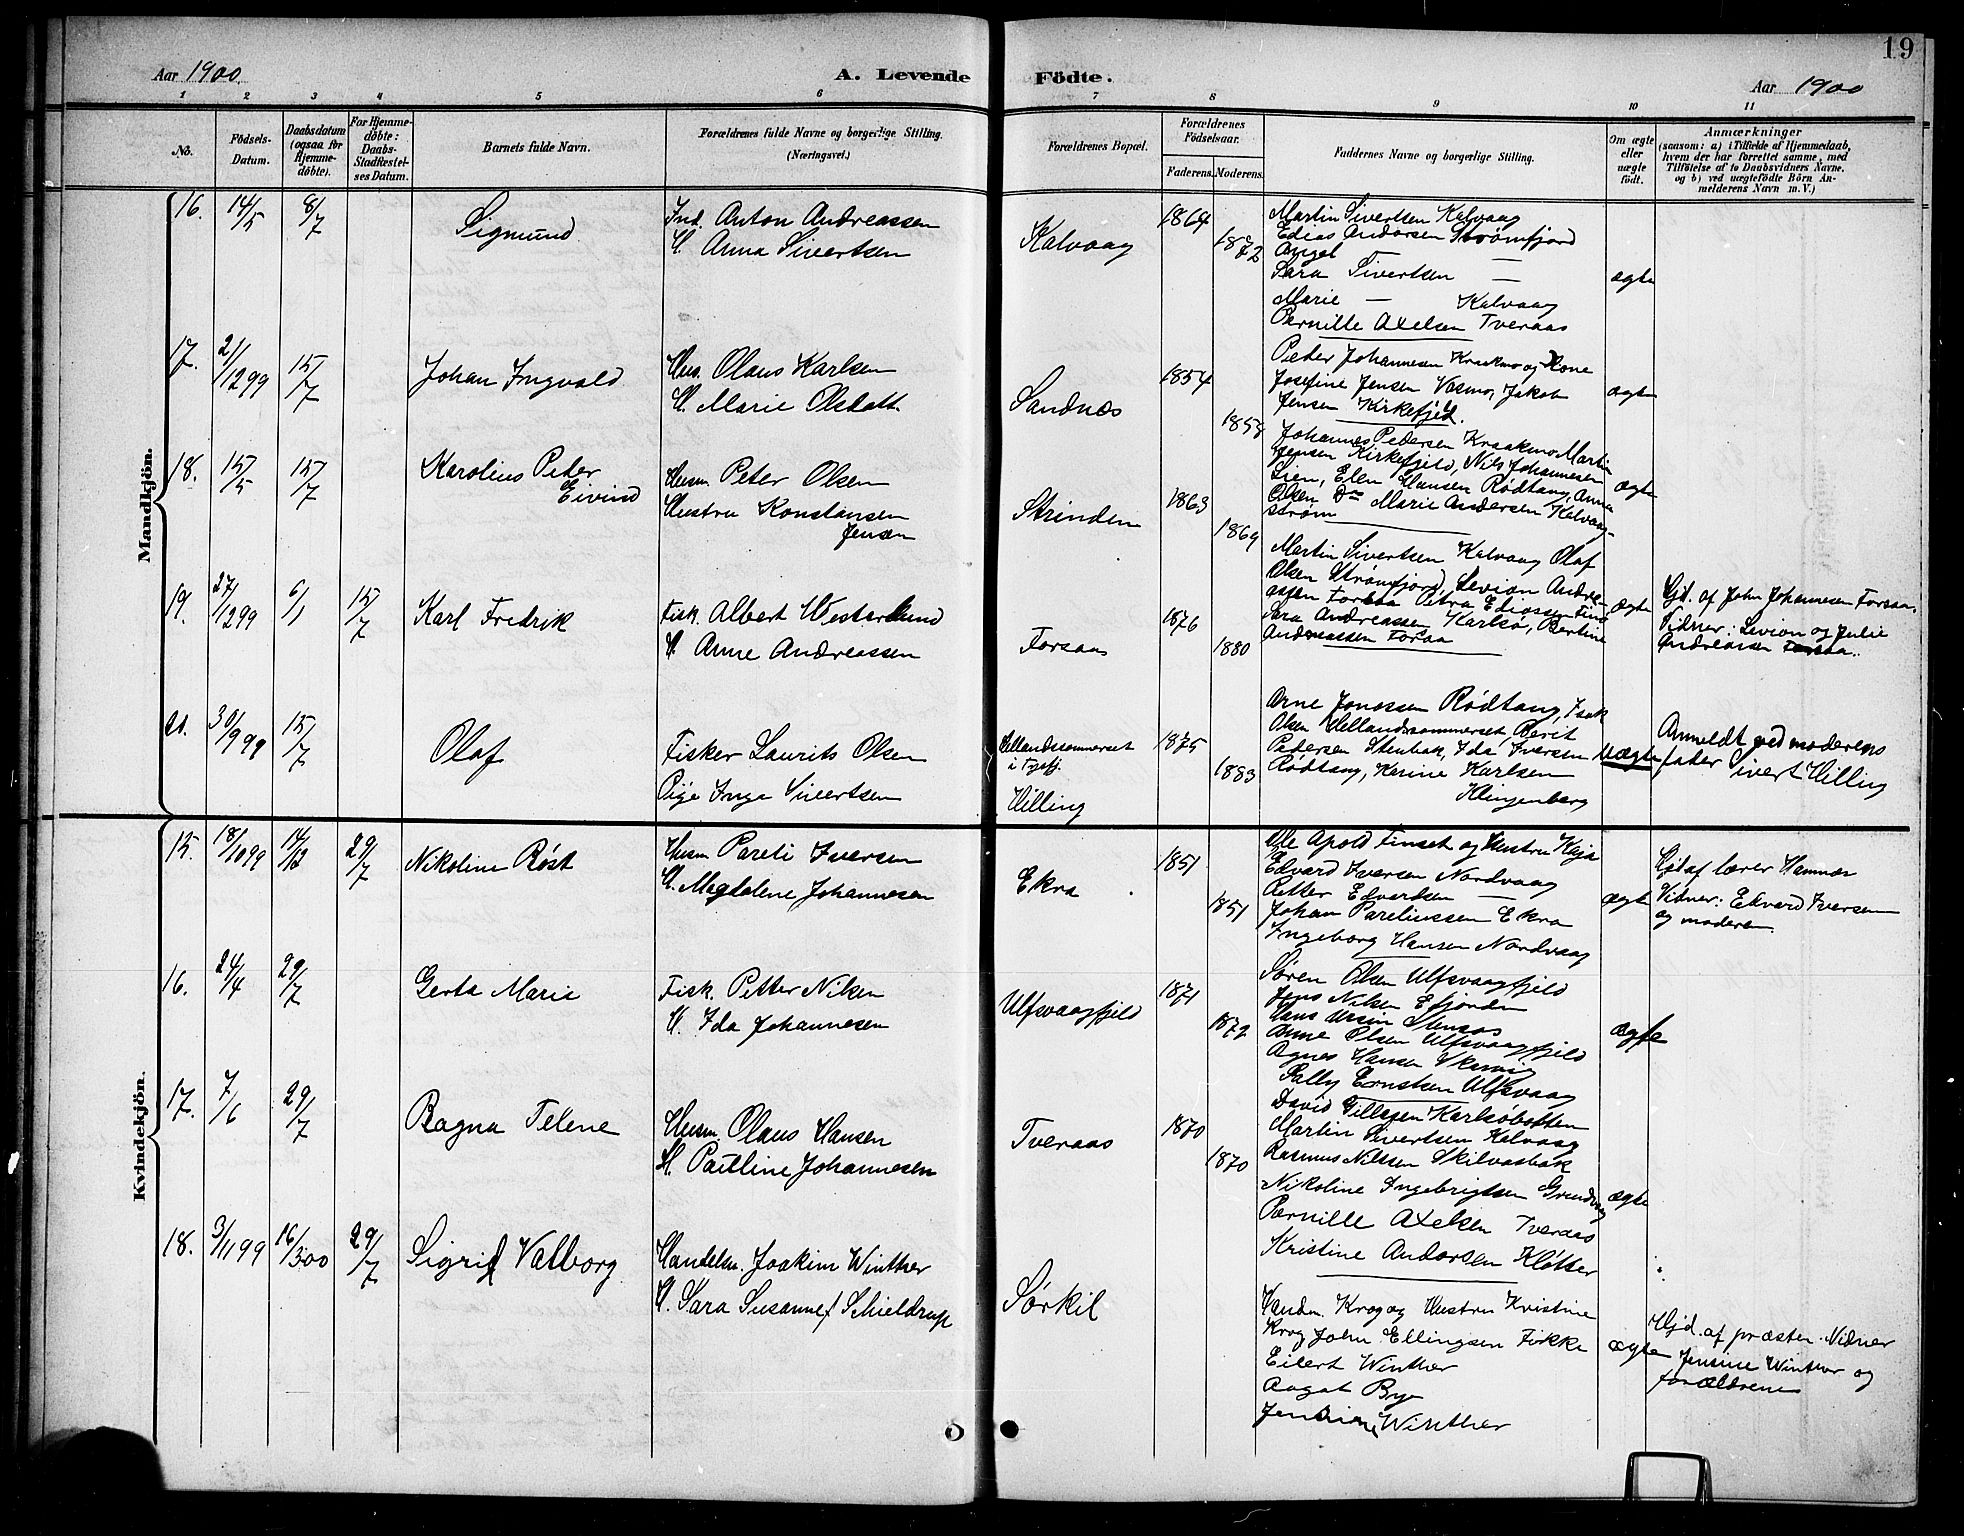 19
Aar 1900.
A. Levende Födte.
Aar 1900
1 2 3 4 5 6 7 8 9 10 11
No.
Födsels-
Datum.
Daabsdatum
(ogsaa for
Hjemme-
döbte).
For Hjemme-
döbte:
Daabs-
Stadfæstel-
ses Datum.
Barnets fulde Navn.
Forældrenes fulde Navne og borgerlige Stilling.
(Næringsvei.)
Forældrenes Bopæl.
Forældrenes
Födselsaar.
Faderens. Moderens.
Faddernes Navne og borgerlige Stilling.
Om ægte
eller
uægte
födt.
Anmærkninger
(saasom: a) i Tilfælde af Hjemmedaab,
hvem der har forrettet samme, med
Tilföielse af to Daabsvidners Navne.
og b) ved uægtefödte Börn An-
melderens Navn m. V.)
Mandkjön.
16. 14/5 8/7
Sigmund
Ind. Anton Andreassen
H. Anna Sivertsen
Kalvaag
1864
1872
Martin Sivertsen Kalvaag
Edias Andorsen Strømfjord
Angel
Sara Sivertsen —
Marie — Kalvaag
Pernille Axelsen Tveraas
ægte
17. 21/1299 15/7
Johan Ingvald
Hus. Olaus Karlsen
H. Marie Olsdatt.
Sandnæs
1854
1854
Peder Johannesen Kraakmo og Kone
Josefine Jensen Vasmo, Jakob
Jensen Kirkefjeld.
ægte
18. 15/5 15/7
Karolius Peter
Eivind
Husm Peter Olsen
Hustru Konstansen
Jensen
Strinden
1863
1869
Johannes Pedersen Kraakmo Martin
Jensen Kirkefjeld, Nils Johannesen
Lien, Elen Hansen Rødtang, Anna
Olsen Do Marie Andersen Kalvaag-
strøm
ægte
19. 27/1299 6/1 15/7
Karl Fredrik
Fisk. Albert Westerlund
H. Anne Andreassen
Forsaa
1876
1880
Martin Sivertsen Kalvaag Olaf
Olsen Strømfjord, Levion Andre-
assen Forsaa Petra Ediassen
Sara Andreassen Karlsø, Bertine
Andreassen Forsaa
ægte
Hjd. af John Johannesen Forsaa.
Vidner: Levion og Julie
Andreasen Forsaa.
21. 30/9 99 15/7
Olaf
Fisker Laurits Olsen
Pige Inga Sivertsen
Hellandssommerset
i Tysfj.
Hilling
1875
1883
Arne Jonassen Rødtang, Isak
Olsen Hellandssommerset, Berit
Pedersen Stenbak, Ida Iversen
Rødtang, Karine Karlsen
Klingenberg
Uægte
Anmeldt ved moderens
fader Sivert Hilling
Kvindekjön.
15. 18/1099 14/12 29/7
Nikoline Røst
Husm Pareli Iversen
H. Magdalene Johannesen
Ekra
1851
1851
Ole Apold Finset og Hustru Kaja
Edvard Iversen Nordvaag
Petter Edvardsen —
Johan Pareliussen Ekra
Ingeborg Hansen Nordvaag
ægte
Hjd af lærer Hamnæs
Vidner: Edvard Iversen
og moderen.
16. 24/4 29/7
Gerta Marie
Fisk. Petter Nilsen
H. Ida Johannesen
Ulfsvaagfjeld
1871
1872
Søren Olsen Ulfsvaagfjeld
Jens Nilsen Efjorden
Hans Ursin Stensos
Anne Olsen Ulfsvaagfjeld
Agnes Hansen
Sally Ernstsen Ulfsvaag
ægte
17. 7/6 29/7
Ragna Telene
Husm Olaus Hansen
H. Pauline Johannesen
Tveraas
1870
1870
David Tillesen Karlsøbotten
Martin Sivertsen Kalvaag
Rasmus Nilssen Skilvasbak
Nikoline Ingebrigtsen
Pernille Axelsen Tveraas
Kristine Andersen Kløtter
ægte
18. 3/1199 16/300 29/7
Sigrid Valborg
Handelsm. Joakim Winther
H. Sara Susanne f Schieldrup
Sørkil
Handm. Krog og Hustru Kristine
Krog John Ellingsen Fikke
Eilert Winther
August Bye
Jensine Winther
ægte
Hjd. af præsten. Vidner
Jensine Winther og
forældrene